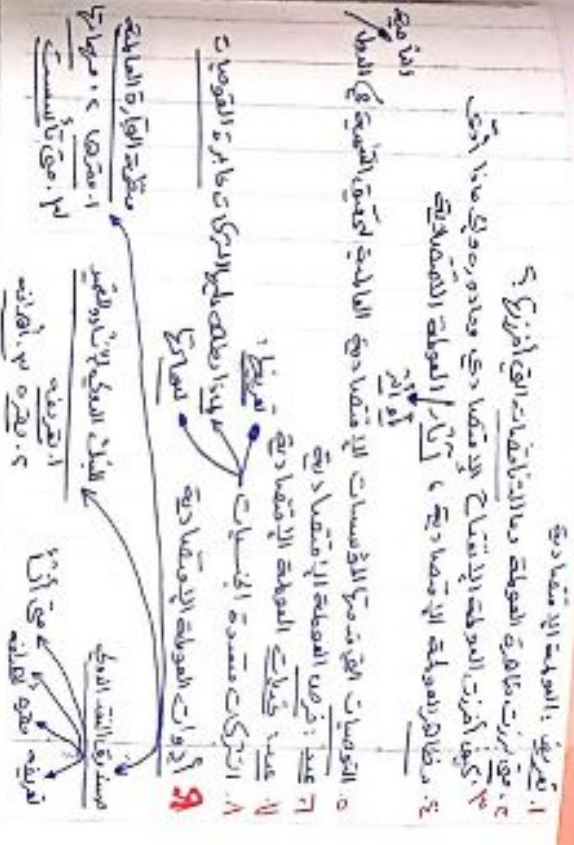 ١. تعريف: العولمة الاقتصادية
٢. متى برزت ظاهرة العولمة وما التناقضات التي أفرزتها؟
٣. كيف أفرزت العولمة الانفتاح الإقتصادي وما دوره وإلى ماذا أدى
٤. مظاهر العولمة الإقتصادية، آثار العولمة الاقتصادية
أو أثر
٥. التوصيات التي قدمتها المؤسسات الإقتصادية العالمية لتحقيق التنمية في الدول
النامية
٦. عدد: فرص العولمة الإقتصادية
٧. عدد تحديات العولمة الإقتصادية
٨. الشركات متعددة الجنسيات
تعريفها:
لماذا يطلق عليها الشركات عابرة القوميات
سماتها
٩. أدوات العولمة الإقتصادية
صندوق النقد الدولي
تعريفه
مقره
أهدافه
متى أنشأ
البنك الدولي للإنشاء والتعمير
١. تعريفه
٢. مقره ٣. أهدافه
منظمة التجارة العالمية
١. مقرها ٢. مهماتها
٣. متى تأسست